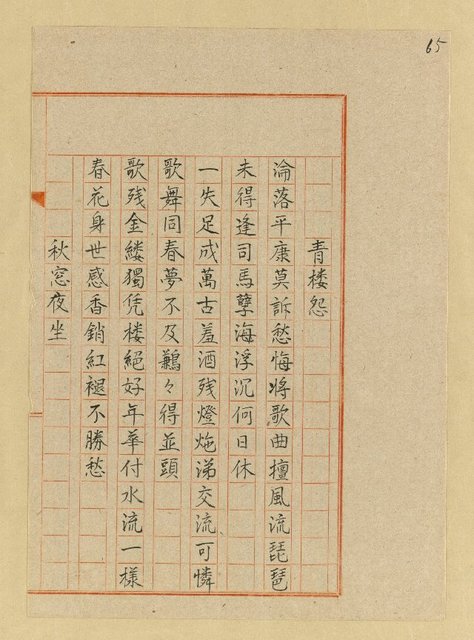 65
青楼怨
淪落平康莫訴愁悔將歌曲擅風流琵琶
未得逢司馬孽海浮沉何日休
一失足成萬古羞酒残燈炧涕交流可憐
歌舞同春夢不及鶼々得並頭
歌残金縷獨凭楼絕好年華付水流一樣
春花身世感香銷紅褪不勝愁
秋窓夜坐